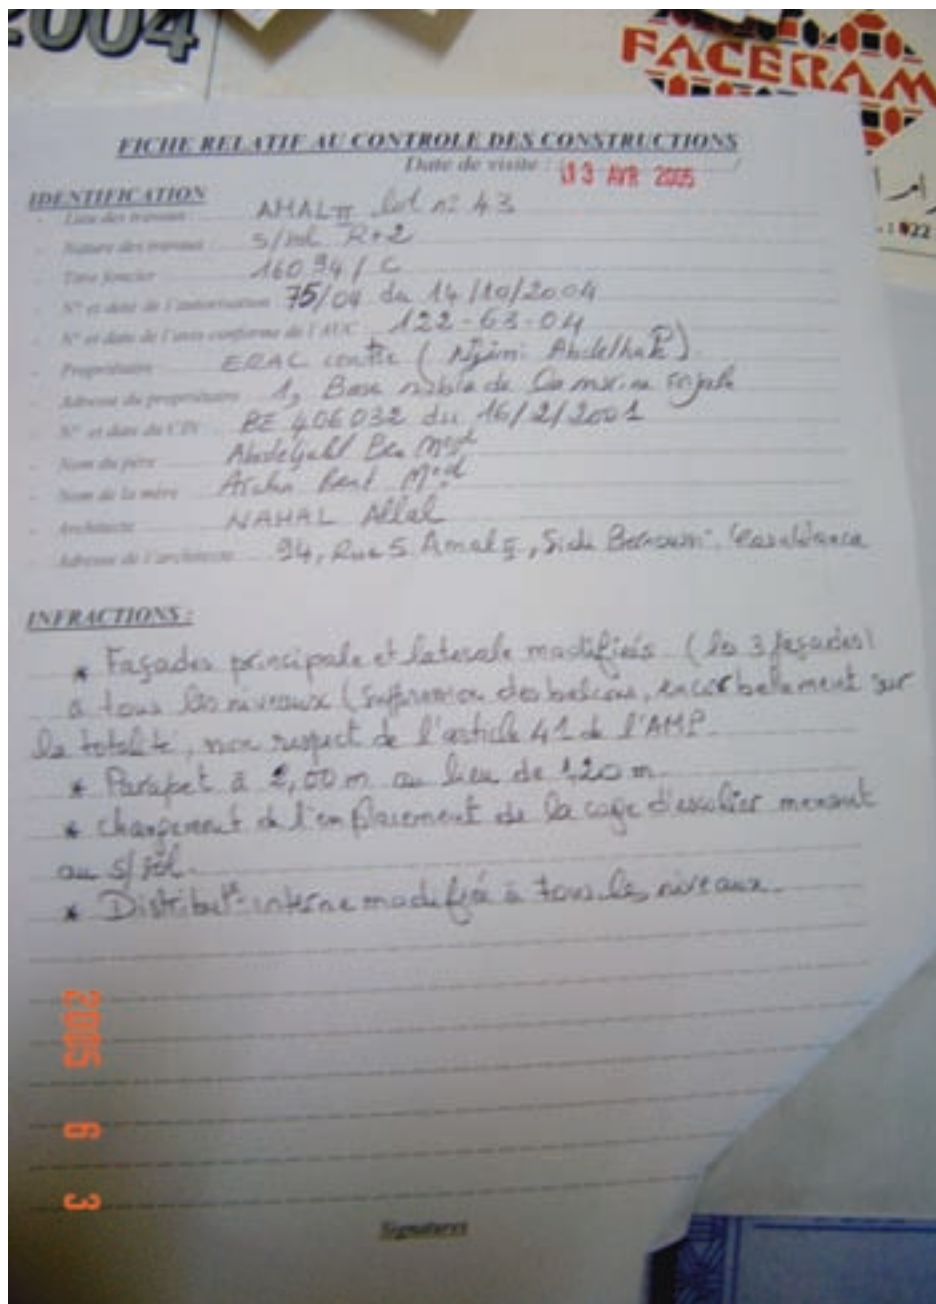 2004
FACERAM
FICHE RELATIF AU CONTROLE DES CONSTRUCTIONS
Date de visite : 13 AVR 2005
IDENTIFICATION
- Lieu des travaux AMAL II lot n° 43
- Nature des travaux S/sol R+2
- Titre foncier 16094 / C
- N° et date de l'autorisation 75/04 du 14/10/2004
- N° et date de l'avis conforme de l'AUC 122-63-04
- Propriétaire ERAC centre ( Abdelhak )
- Adresse du propriétaire 1, Base de la marine
- N° et date du CIN BE 406032 du 16/2/2001
- Nom du père Ben Med
- Nom de la mère Bent Med
- Architecte NAHAL Allal
- Adresse de l'architecte 94, Rue 5 Amal I, Sidi Bernoussi Casablanca
INFRACTIONS :
* Façades principale et laterale modifiés (les 3 façades)
à tous les niveaux (suppression des balcons, encorbelement sur
la totalité, non respect de l'article 41 de l'AMP.
* Parapet à 2,00 m au lieu de 1,20 m.
* changement de l'emplacement de la cage d'escalier menant
au s/sol.
* Distribut° interne modifiée à tous les niveaux.
Signatures
2005 6 3
022